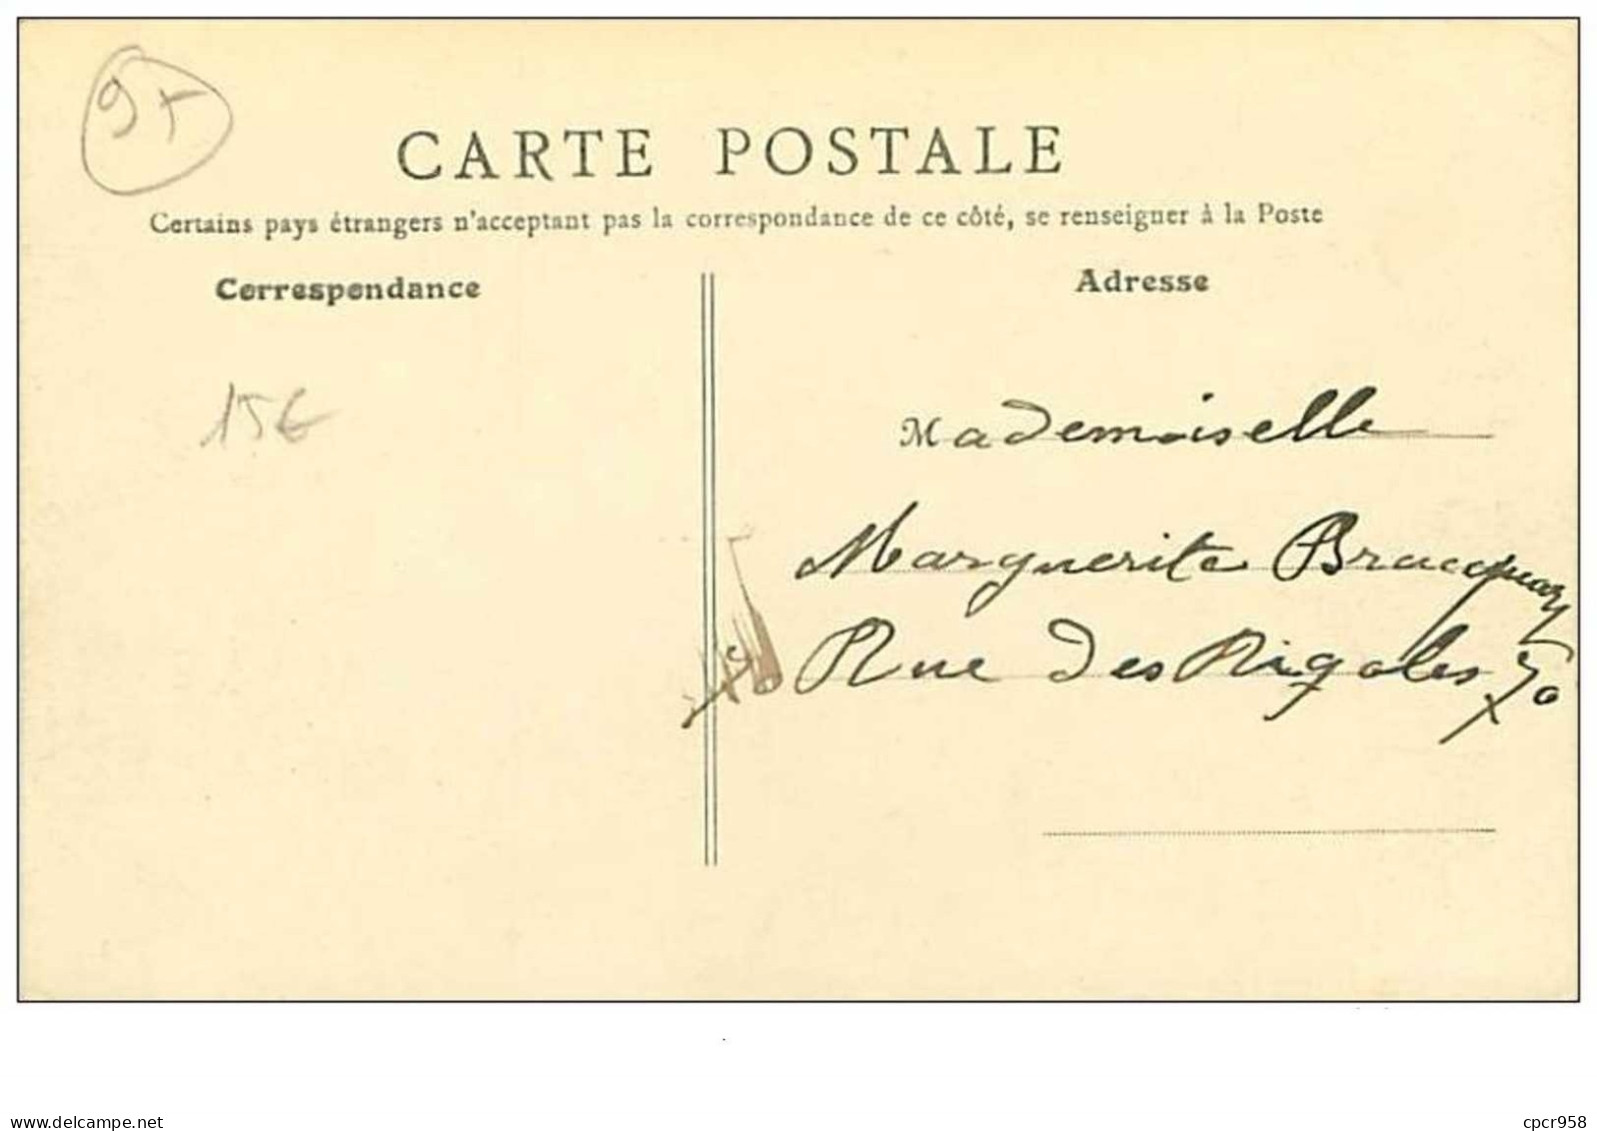 CARTE POSTALE
Certains pays étrangers n'acceptant pas la correspondance de ce côté, se renseigner à la Poste
Correspondance
Adresse
15€
Mademoiselle
Marguerite
Rue des Rigoles 70
delcampe.net
cpcr958